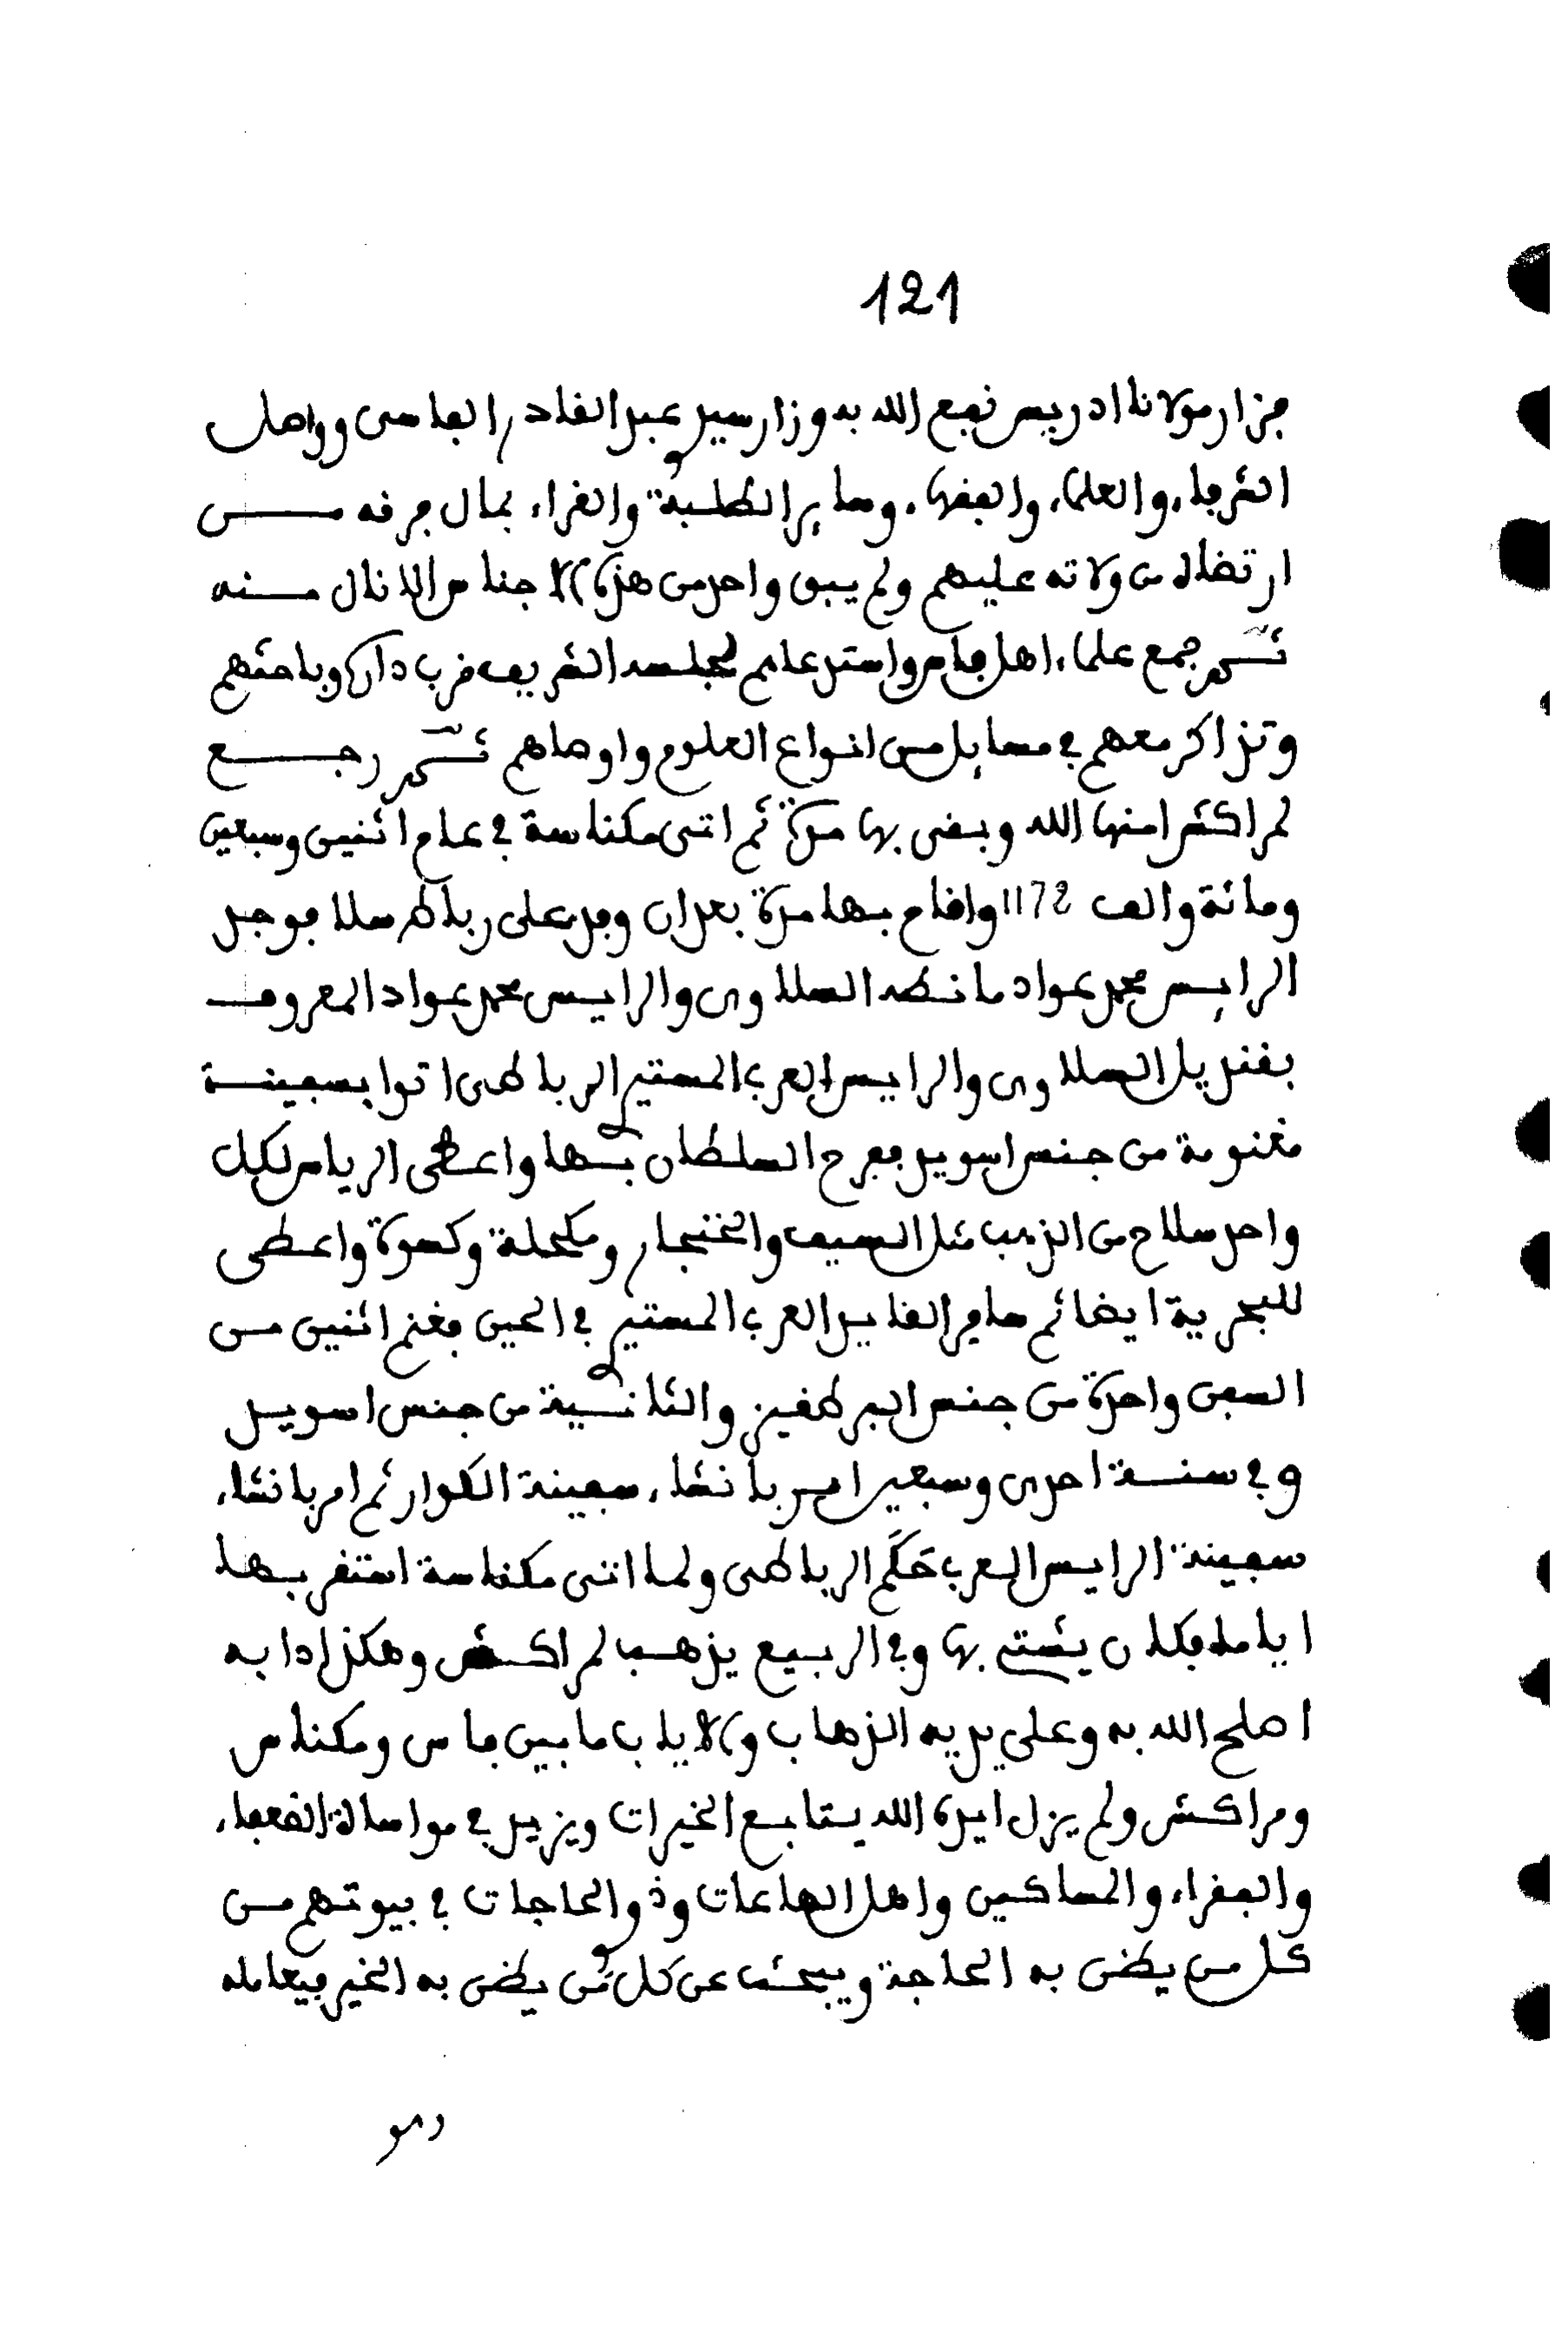 121
فزار مولانا ادريس نفع الله به وزار سيد عبد القادر الفاسي وواصل
الشرفاء والعلماء والفقهاء وساير الطلبة والقراء بمال فرقه من
ارتضى من ولاته عليهم ولم يبق واحد من هذه الاجناس الا نال منه
ثم جمع علماء اهل فاس واستدعاهم لمجلسه الشريف قرب داره وباحثهم
وتذاكر معهم في مسايل من انواع العلوم واوصاهم ثم رجع
لمراكش امنها الله وبقى بها مدة ثم اتى مكناسة في عام اثنين وسبعين
ومائة والف 1172 واقام بها مدة بعد ان وفد على رباط سلا فوجد
الرايس محمد عواد السلاوى والرايس محمد عواد المعروف
بقنديل السلاوى والرايس العربي المستيري الرباطى اتوا بسفينة
مغنومة من جنس اسويد ففرح السلطان بها واعطى الرياس لكل
واحد سلاح من الذهب مثل السيف والخنجار ومكحلة وكسوة واعطى
للبحرية ايضا ثم سافر القايد العربي المستيري في الحين فغنم اثنين من
السفن واحدة من جنس البرطقيز والثانية من جنس اسويد
وفي سنة احدى وسبعين امر بانشاء سفينة الكوار ثم امر بانشاء
سفينة الرايس العربي حكم الرباطى ولما اتى مكناسة استقر بها
اياما فكان يشتي بها وفي الربيع يذهب لمراكش وهكذا دابه
اصلح الله به وعلى يديه الذهاب والاياب ما بين فاس ومكناس
ومراكش ولم يزل ايده الله يتابع الخيرات ويزيد في مواساة الضعفاء
والفقراء والمساكين واهل العاهات وذو الحاجات في بيوتهم من
كل من يظن به الحاجة ويبحث عن كل من يظن به الخير فيعامله